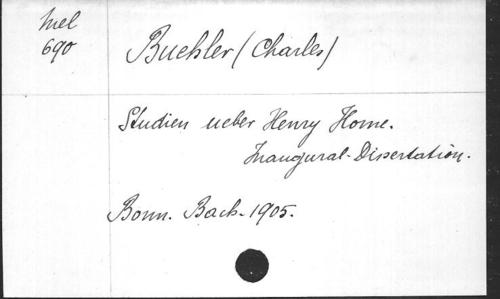 Mel
690
Buehler (Charles)
Studien ueber Henry Home.
Inaugural-Dissertation.
Bonn. Bach. 1905.